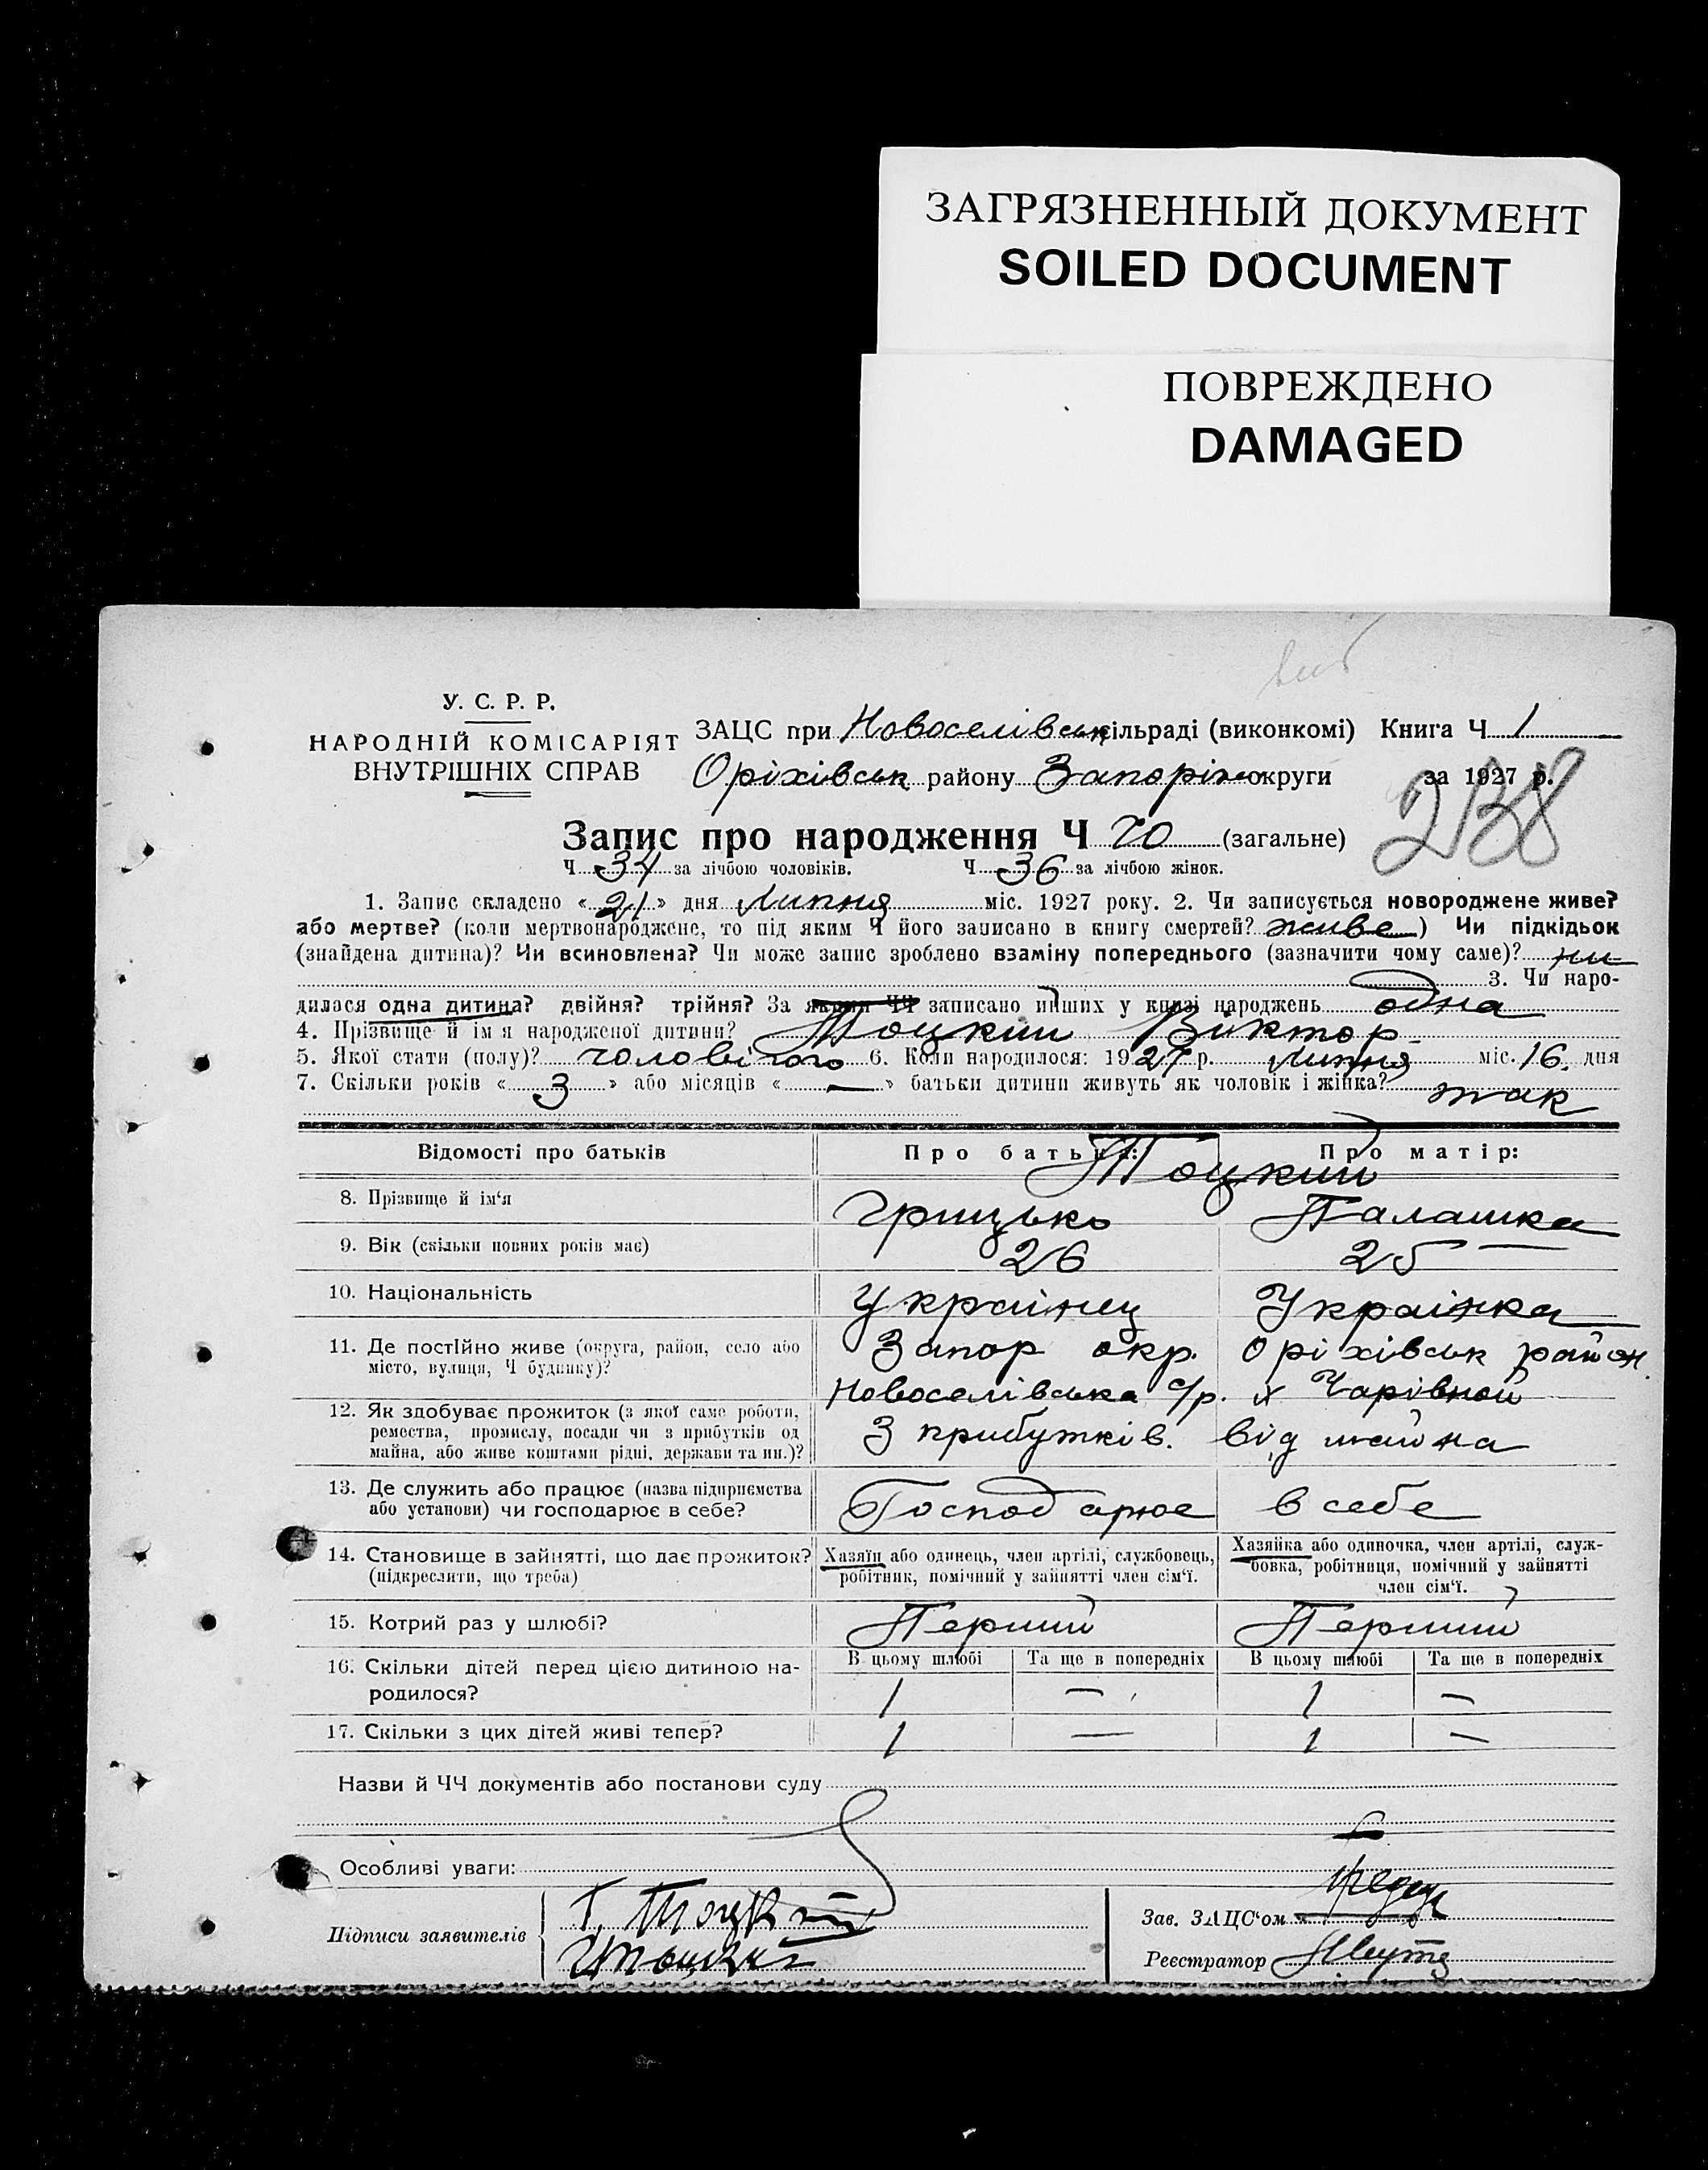 ЗАГРЯЗНЕННЫЙ ДОКУМЕНТ
SOILED DOCUMENT
ПОВРЕЖДЕНО
DAMAGED
У. С. Р. Р.
НАРОДНІЙ КОМІСАРІЯТ
ВНУТРІШНІХ СПРАВ
ЗАЦС при Новоселівськ сільраді (виконкомі) Книга Ч 1
Оріхівськ району Запоріж округи за 1927 р.
238
Запис про народження Ч 70 (загальне)
Ч 34 за лічбою чоловіків. Ч 36 за лічбою жінок.
1. Запис складено « 21 » дня Липня міс. 1927 року. 2. Чи записується новороджене живе?
або мертве? (коли мертвонароджене, то під яким Ч його записано в книгу смертей? живе ) Чи підкідьок
(знайдена дитина)? Чи всиновлена? Чи може запис зроблено взаміну попереднього (зазначити чому саме)? ни
3. Чи наро-
дилася одна дитина? двійня? трійня? За якими ЧЧ записано инших у книзі народжень одна
4. Прізвище й ім'я народженої дитини? Тоцкий Віктор
5. Якої стати (полу)? чоловічого 6. Коли народилося: 1927 р. Липня міс. 16. дня
7. Скільки років « 3 » або місяців « — » батьки дитини живуть як чоловік і жінка? так
Відомості про батьків Про батька: Про матір:
Тоцкий
8. Прізвище й ім'я Грицько Палашка
9. Вік (скільки повних років має) 26 25 —
10. Національність Українец Українка
11. Де постійно живе (округа, район, село або Запор окр. Оріхівськ район
місто, вулиця, Ч будинку)? Новоселівська с/р. х Чарівной
12. Як здобуває прожиток (з якої саме роботи,
ремества, промислу, посади чи з прибутків од З прибутків. від майна
майна, або живе коштами рідні, держави та ин.)?
13. Де служить або працює (назва підприємства
або установи) чи господарює в себе? Господарює в себе
14. Становище в зайнятті, що дає прожиток? Хазяїн або одинець, член артілі, службовець, Хазяйка або одиночка, член артілі, служ-
(підкреслити, що треба) робітник, помічний у зайнятті член сім'ї. бовка, робітниця, помічний у зайнятті
член сім'ї.
15. Котрий раз у шлюбі? Перший Перший
16. Скільки дітей перед цією дитиною на- В цьому шлюбі Та ще в попередніх В цьому шлюбі Та ще в попередніх
родилося? 1 — 1 —
17. Скільки з цих дітей живі тепер? 1 — 1 —
Назви й ЧЧ документів або постанови суду
Особливі уваги:
Підписи заявителів Г. Тоцкий
Зав. ЗАЦС'ом
Реєстратор